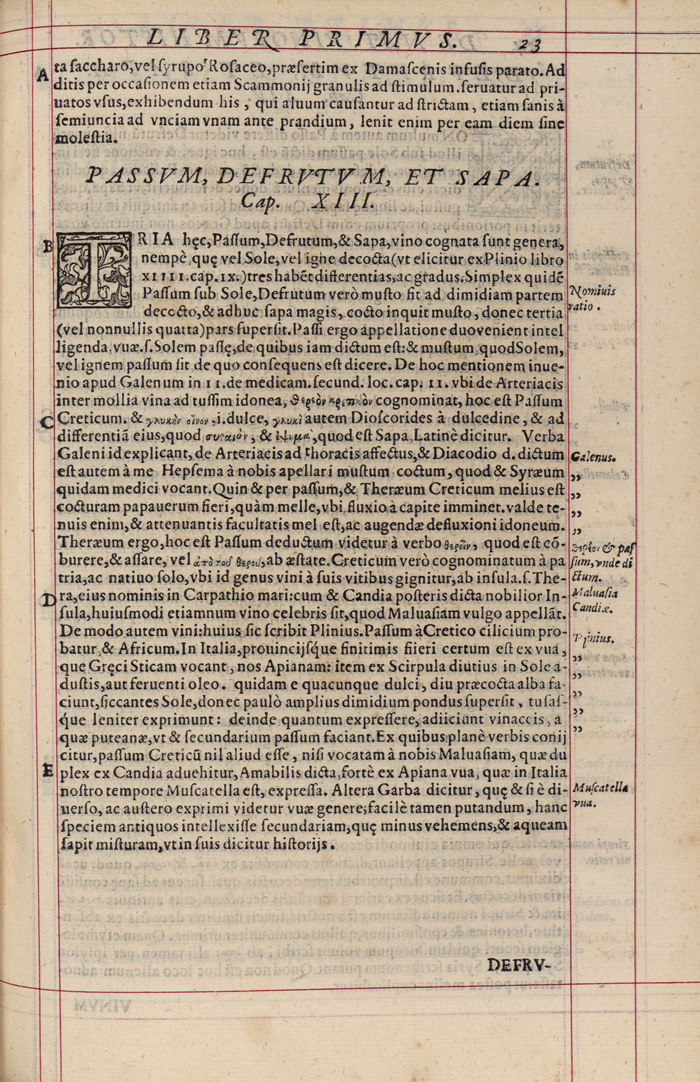 LIBER PRIMVS. 23
A
ta saccharo, vel syrupoʳ Rosaceo, præsertim ex Damascenis infusis parato. Ad
ditis per occasionem etiam Scammonij granulis ad stimulum. seruatur ad pri-
uatos vsus, exhibendum his, qui aluum causantur ad strictam, etiam sanis à
semiuncia ad vnciam vnam ante prandium, lenit enim per eam diem sine
molestia.
PASSVM, DEFRVTVM, ET SAPA.
Cap. XIII.
B
TRIA hęc, Passum, Defrutum, & Sapa, vino cognata sunt genera,
nempè, quę vel Sole, vel igne decocta (vt elicitur ex Plinio libro
XIIII. cap. IX.) tres habẽt differentias, ac gradus. Simplex quidẽ
Passum sub Sole, Defrutum verò musto sit ad dimidiam partem
decocto, & adhuc sapa magis, cocto inquit musto, donec tertia
(vel nonnullis quarta) pars supersit. Passi ergo appellatione duo venient intel
ligenda. vuæ. s. Solem passę, de quibus iam dictum est: & mustum quod Solem,
vel ignem passum sit de quo consequens est dicere. De hoc mentionem inue-
nio apud Galenum in 11. de medicam. secund. loc. cap. 11. vbi de Arteriacis
inter mollia vina ad tussim idonea, cognominat, hoc est Passum
C
Creticum. & γλυκὺν οἶνον, i. dulce, γλυκὶ autem Dioscorides à dulcedine, & ad
differentiã eius, quod συραιὸν, & ἕψημα, quod est Sapa Latinè dicitur. Verba
Galeni id explicant, de Arteriacis ad thoracis affectus, & Diacodio d. dictum
est autem à me Hepsema à nobis apellari mustum coctum, quod & Syræum
quidam medici vocant. Quin & per passum, & Theræum Creticum melius est
cocturam papauerum fieri, quàm melle, vbi fluxio à capite imminet. valde te-
nuis enim, & attenuantis facultatis mel est, ac augendæ defluxioni idoneum.
Theræum ergo, hoc est Passum deductum videtur à verbo θερεῖν, quod est cõ-
burere, & assare, vel ἀπὸ τοῦ θέρους, ab æstate. Creticum verò cognominatum à pa
tria, ac natiuo solo, vbi id genus vini à suis vitibus gignitur, ab insula. s. The-
D
ra, eius nominis in Carpathio mari: cum & Candia posteris dicta nobilior In-
sula, huiusmodi etiamnum vino celebris sit, quod Maluasiam vulgo appellãt.
De modo autem vini: huius sic scribit Plinius. Passum à Cretico cilicium pro-
batur, & Africum. In Italia, prouincijsq́ue finitimis fiieri certum est ex vua,
que Gręci Sticam vocant, nos Apianam: item ex Scirpula diutius in Sole a-
dustis, aut feruenti oleo. quidam e quacunque dulci, diu præcocta alba fa-
ciunt, siccantes Sole, donec paulò amplius dimidium pondus supersit, tusas-
q́ue leniter exprimunt: deinde quantum expressere, adiiciunt vinaccis, a
quæ puteanæ, vt & secundarium passum faciant. Ex quibus planè verbis conij
citur, passum Creticũ nil aliud esse, nisi vocatam à nobis Maluasiam, quæ du
E
plex ex Candia aduehitur, Amabilis dicta, fortè ex Apiana vua, quæ in Italia
nostro tempore Muscatella est, expressa. Altera Garba dicitur, quę & si è di-
uerso, ac austero exprimi videtur vuæ genere, facilè tamen putandum, hanc
speciem antiquos intellexisse secundariam, quę minus vehemens, & aqueam
sapit misturam, vt in suis dicitur historijs.
Nomiuis
ratio.
Galenus.
„
„
„
„
& pas
sum, vnde di
ctum.
Maluasia
Candiæ.
Plinius.
„
„
„
„
„
Muscatella
vua.
DEFRV-